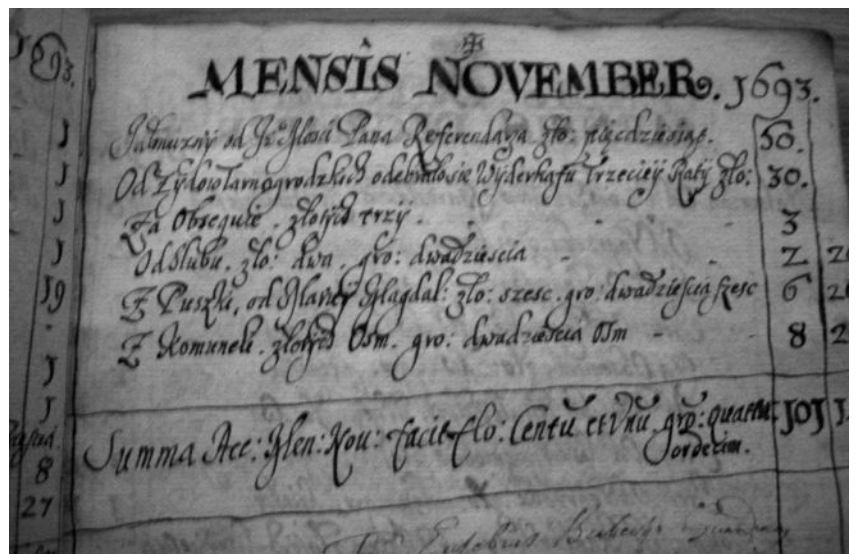 MENSIS NOVEMBER. 1693.
Jałmużny od Je° Mosci Pana Referendarza zło: pięcdziesiąt. 50.
Od Zydow Tarnogrodzkich odebrało się Wyderkafu Trzeciey Raty zło: 30.
Za Obsequie. złotych trzy. 3
Od Slubu. zło: dwa. gro: dwadziescia 2
Z Puszki, od Mariey Magdal: zło: szesc. gro: dwadziescia szesc 6
Z Komunek. złotych Osm. gro: dwadziescia Osm 8
Summa Acc: Men: Nou: facit flo: Centũ et Vnũ gro: quattu- 101
ordecim.
8
27